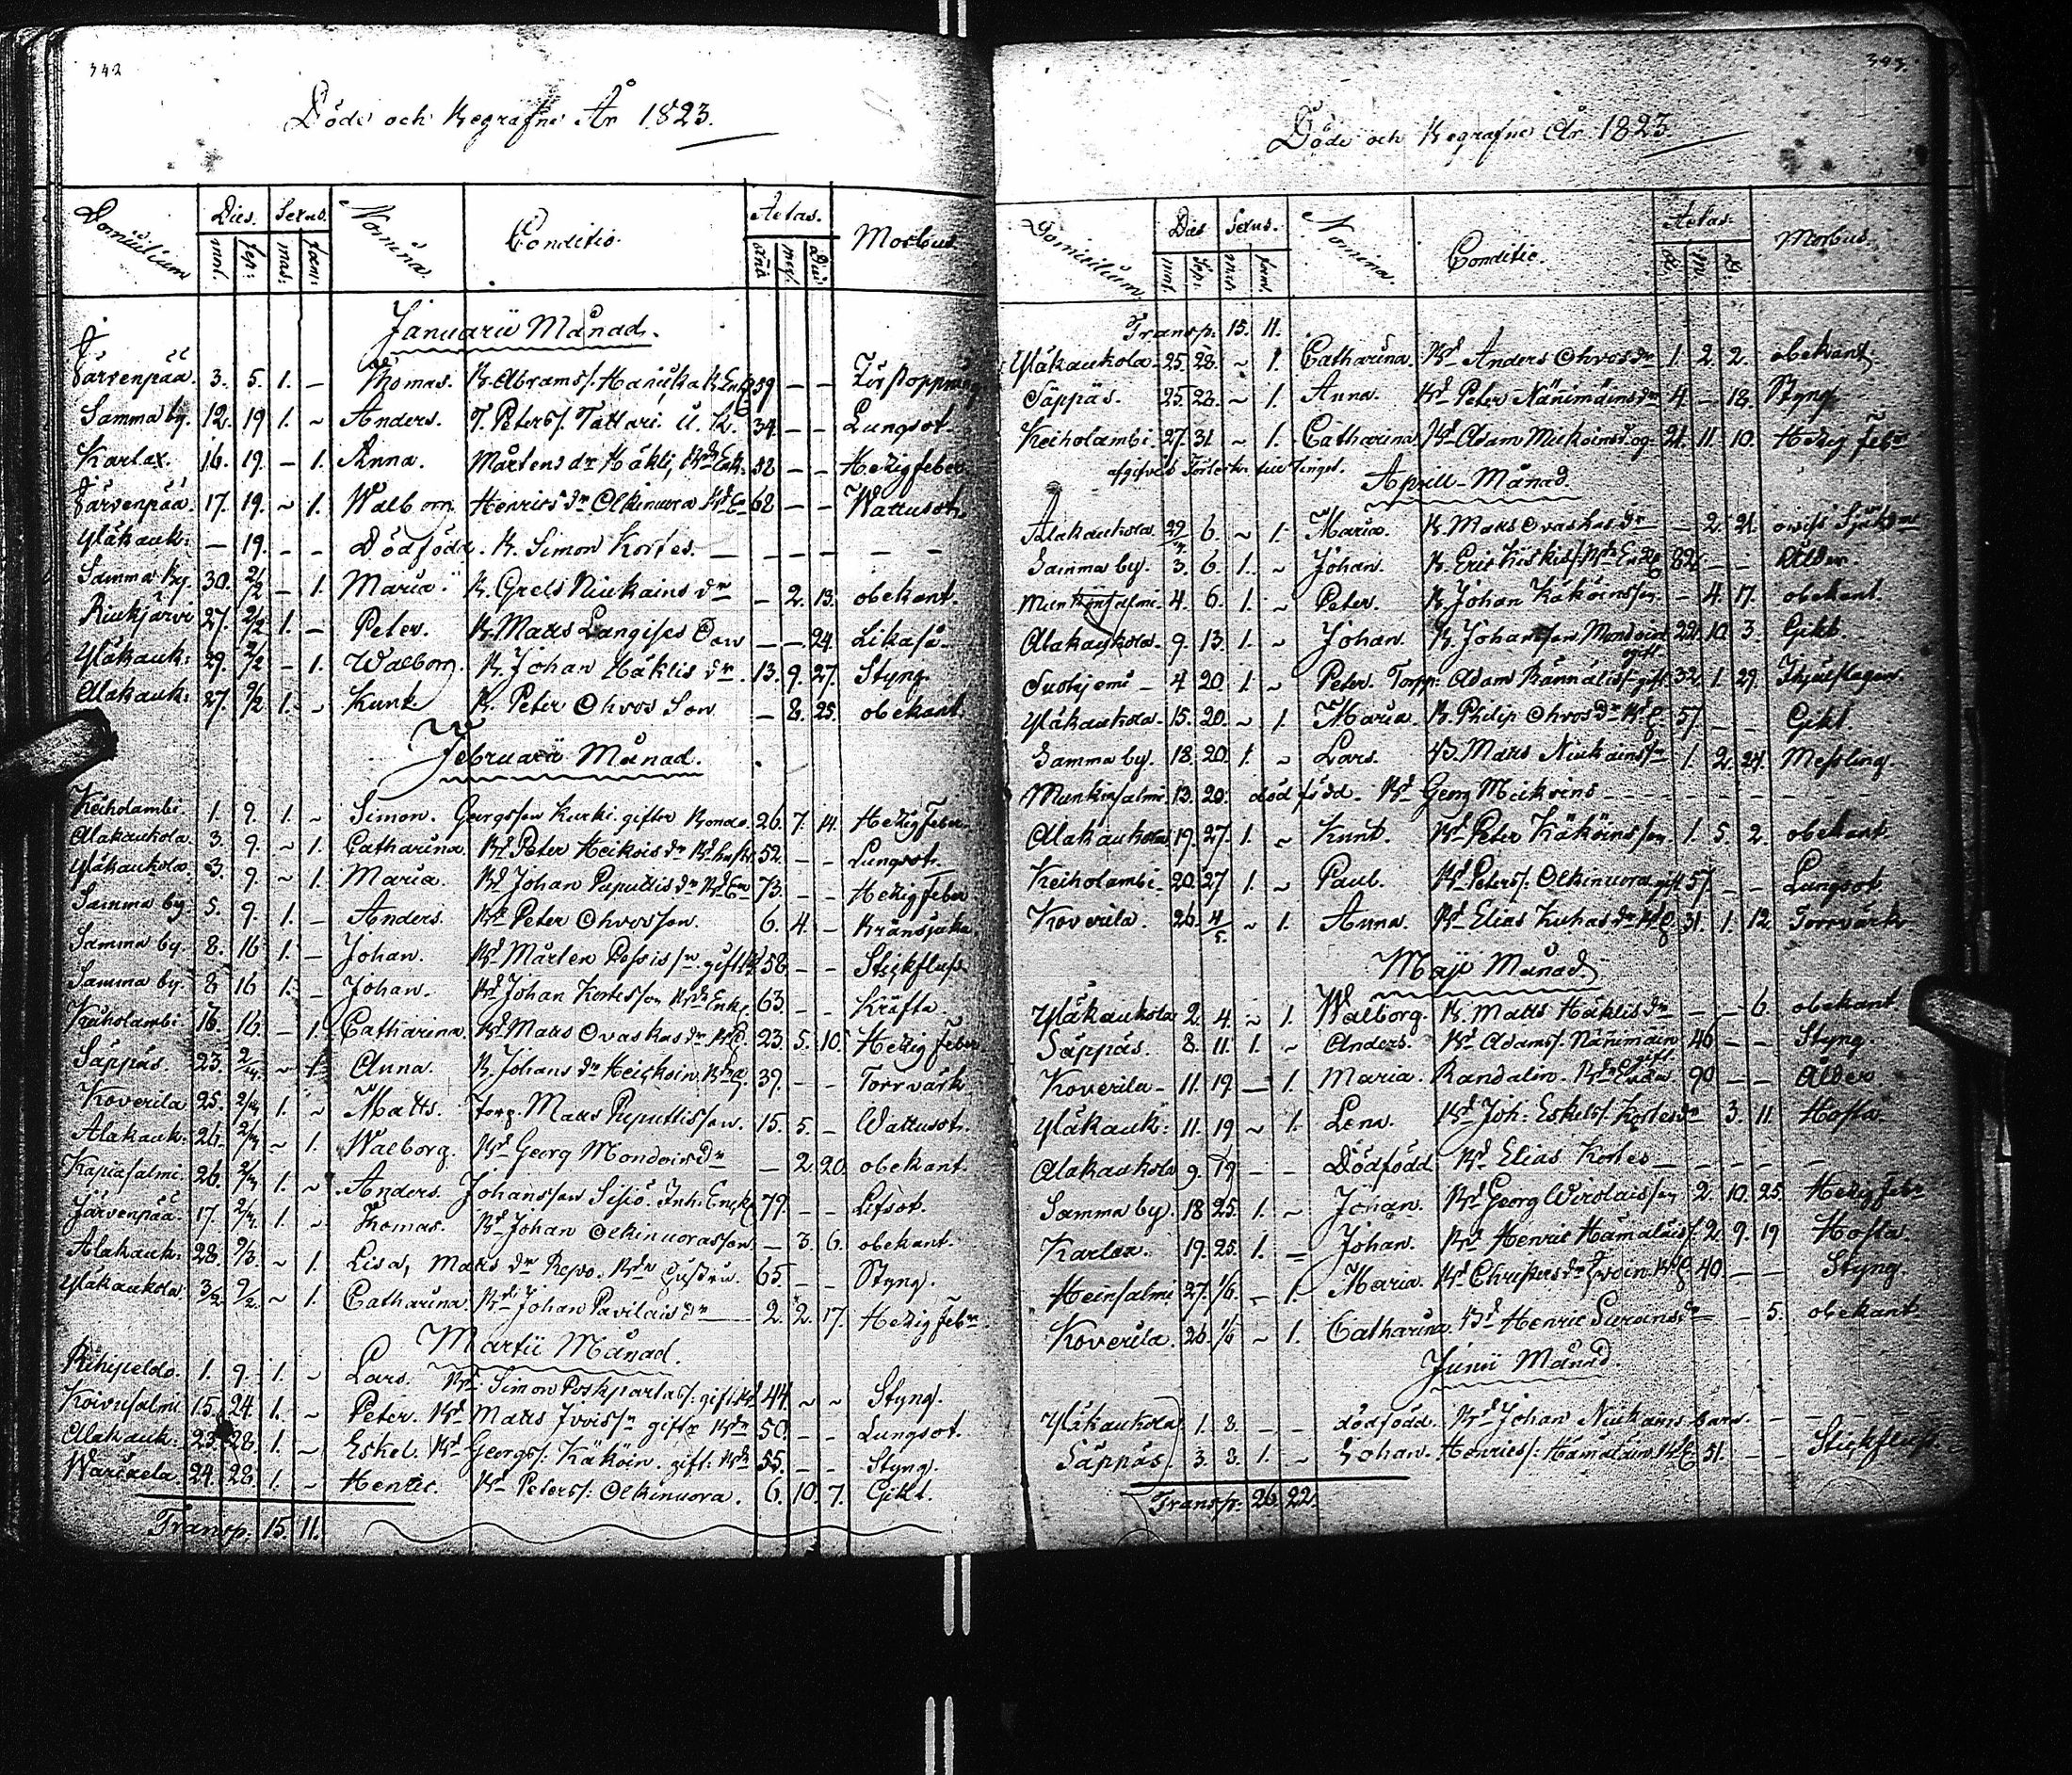 342
Döde och Begrafne År 1823.
Domicilium Dies. Sexus. Nomina. Conditio. Aetas. Morbus
mort. sep: mas: fœm: dies
Januarii Månad.
Järvenpää. 3. 5. 1. – Thomas. B. Abramss. 59 – –
Samma by. 12. 19 1. ~ Anders. T. Peterss. Tattari. 34 – – Lungsot.
Karlax. 16. 19. – 1. Anna. Mårtens dr Häklij 52 – – Hetzigfeber
Järvenpää. 17. 19. ~ 1. Walborg Henrics dr Olkinuora 62 – – Wattusot.
Yläkauk: – 19. – – Dödfödd. B. Simon Kortes. – – – – – –
Samma by. 30. 2/2 – 1. Maria. B. Grels Niukains dr – 2. 13. obekant.
27. 2/2 1. – Peter. B. Matts Langises Son – – 24.
Yläkauk: 29. 2/2 – 1. Walborg. B. Johan Häklis dr. 13. 9. 27. Styng.
Alakauk: 27. 9/2 1. ~ Knut. B. Peter Ohvos Son – 8. 25. obekant.
Februarii Månad.
Keiholambi 1. 9. 1. ~ Simon. Georgsson Kurki. gifter Bonde. 26. 7. 14. Hetzigfeber
Alakaukola 3. 9. ~ 1. Catharina. Bd Peter Heikois dr 52. – – Lungsot.
Yläkaukola. 3. 9. ~ 1. Maria. Bd Johan Puputtis dr 73. – – Hetzigfeber
Samma by 5. 9. 1. – Anders. Bd Peter Ohvosson. 6. 4. –
Samma by. 8. 16 1. – Johan. Bd Mårten 58 – – Stickfluss
Samma by. 8 16 1. – Johan. Bd Johan Kortesson 63. – – Kräfta.
Keiholambi 16. 16. – 1. Catharina. Bd Matts Ovaskas dr 23. 5. 10. Hetzig feber
Säppäs. 23. ~ 1. Anna. B. Johans dr Heickoin 39. – – Torrvärk
Koverila 25. 1. ~ Matts. Torp. Matts Puputtisson. 15. 5. – Wattusot.
Alakauk: 26. ~ 1. Walborg. Bd Georg Mondois dr – 2. 20. obekant.
Kapiasalmi. 26. 1. ~ Anders. Johansson Sisiö. Inh. Enck. 79. – –
Järvenpää. 17. 1. ~ Thomas. Bd Johan Olkinuorasson – 3. 6. obekant.
Alakauk: 28. 9/3 ~ 1. Lisa, Matts dr Repo. Bdn Hustru. 65. – – Styng.
Yläkaukola. ~ 1. Catharina. Bd Johan Pavilais dr 2. 2. 17. Hetzig febr.
Martii Månad.
Rihipeldo. 1. 9. 1. ~ Lars. Bd Simon 44. ~ ~ Styng.
Koivusalmi 15. 24. 1. ~ Peter. Bd Matts Ivoissn giftr Bdn 50. – – Lungsot.
Alakauk: 23. 28. 1. ~ Eskel. Bd Georgs. Käköin. gift. Bde 55. – – Styng.
24. 28. 1. ~ Henric. Bd Peterss. Olkinuora. 6. 10. 7. Gikt.
Transp. 15. 11.
343.
Döde och Begrafne År 1823.
Domicilium. Dies Sexus. Nomina. Conditio. Aetas. Morbus.
mort. Sep: mas fœm. M. D.
Transp. 15. 11.
Yläkaukola. 25. 28. ~ 1. Catharina. Bd Anders Ohvos dr 1. 2. 2. obekant.
Säppäs. 25. 28. ~ 1. Anna. Bd Peter Nänimäins dr 4. – 18. Styng.
Keiholambi. 27. 31. ~ 1. Catharina Bd Adam Mickoins 21. 11. 10. Hetzig febr
afgifven
Aprill – Månad.
Alakaukola. 6. ~ 1. Maria. B. Matts Ovaskas dr – 2. 21.
Samma by. 3. 6. 1. ~ Johan. B. Eric 82. – – Ålder.
Munkinsalmi. 4. 6. 1. ~ Peter. B. Johan Käköinsson. – 4. 17. obekant.
Alakaukola. 9. 13. 1. ~ Johan. B. Johansson Mondoin ogift 22. 10. 3. Gikt.
Suohjemi – 4 20. 1. ~ Peter. Torp: Adam Rännälis gift 32. 1. 29.
Yläkaukola. 15. 20. ~ 1. Maria. B. Philip Ohvos dr 57. – – Gikt.
Samma by. 18. 20. 1. ~ Lars. B. Matts Niukainssn 1. 2. 24. Messling.
Munkinsalmi 13. 20. död född – Bd Georg Mickoins – – – –
Alakaukola 19. 27. 1. ~ Knut. Bd Peter Käköinsson. 1. 5. 2. obekant.
Keiholambi. 20. 27 1. ~ Paul. Bd Peterss. Olkinuora gift 57. – – Lungsot.
Koverila. 26. 4/5. ~ 1. Anna. Bd Elias Kuhas dr 31. 1. 12. Torrvärk
Maji Månad.
Yläkaukola 2. 4. ~ 1. Walborg. B. Matts Häklis dr – – 6. obekant
Säppäs. 8. 11. 1. ~ Anders. Bd Adamss. Nänimäin gift 46 – – Styng.
Koverila – 11. 19 – 1. Maria. Randalin. 90 – – Ålder
Yläkauk: 11. 19 ~ 1. Lena. Bd Joh: Eskelss. Kortes dr 3. 11. Hosta.
Alakaukola 9. 19 – – Dödfödd Bd Elias Kortes – – – –
Samma by. 18 25. 1. ~ Johan. Bd Georg Wirolaisson 2. 10. 25. Hetzig febr
Karlax. 19. 25. 1. – Johan. Bd Henric Hämäläis 2. 9. 19 Hosta.
Heinsalmi 27. 1/6. – 1. Maria. Bd Christers dr 40. – – Styng.
Koverila. 26. 1/6 ~ 1. Catharina. Bd Henric dr – 5. obekant
Junii Månad.
Yläkaukola 1. 8. – – dödfödd. Bd Johan Niukains barn. – – – –
Säppäs. 3. 8. 1. ~ Johan. Henricss: Hämäläin 51. – – Stickfluss.
Transp: 26. 22.